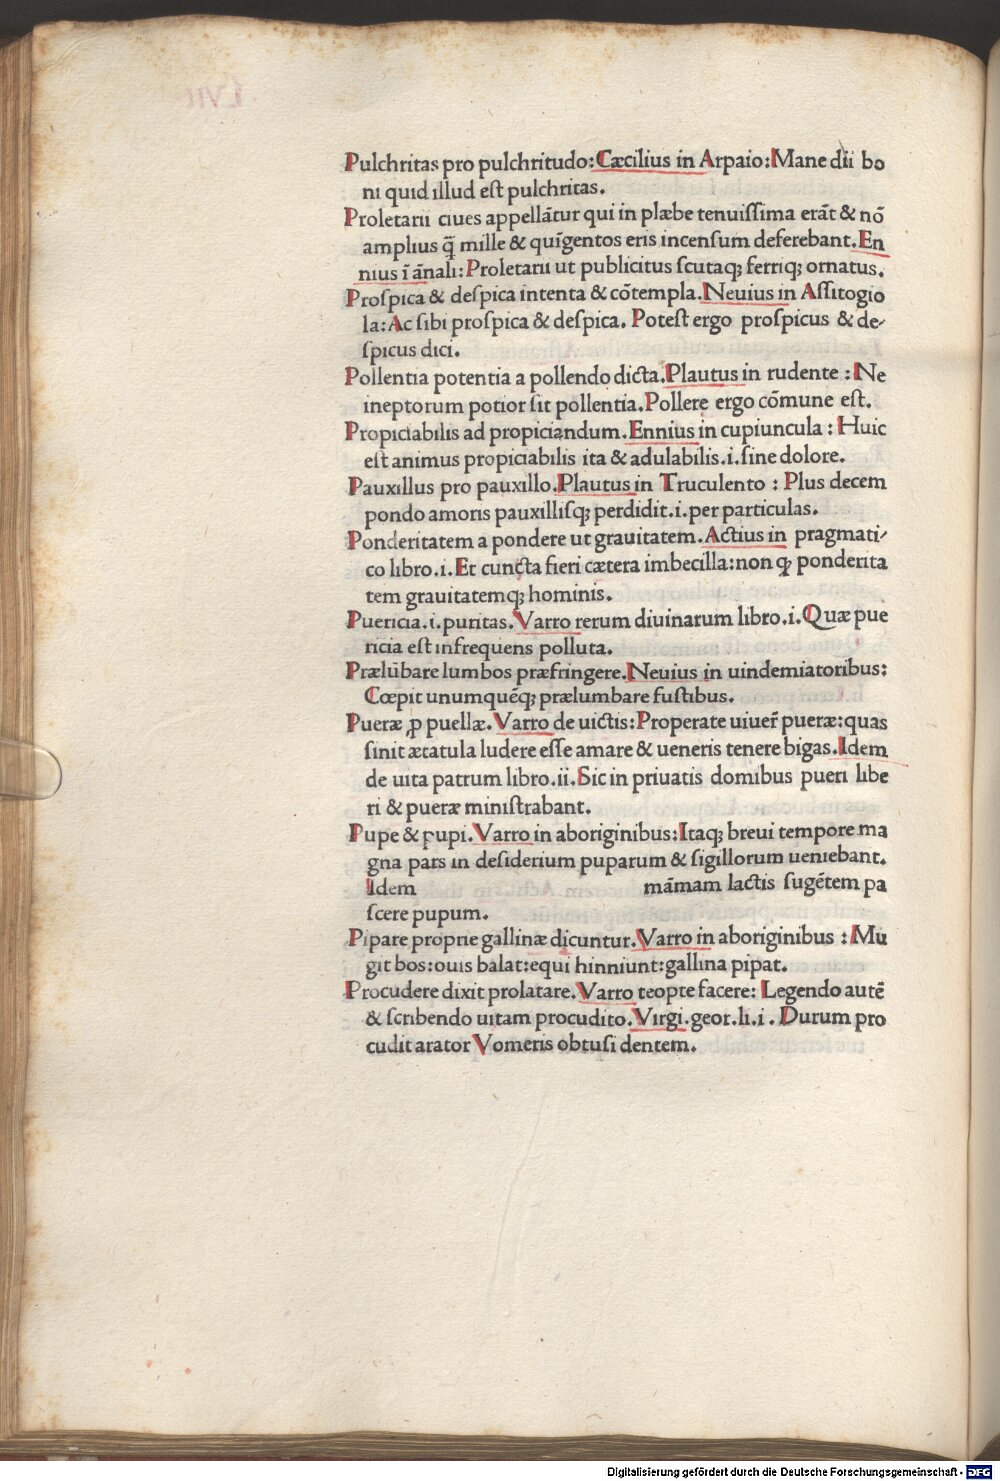 Pulchritas pro pulchritudo: Cæcilius in Arpaio: Mane dii bo
ni quid illud eſt pulchritas.
Proletarii ciues appellãtur qui in plæbe tenuiſſima erãt & nõ
amplius q̃ mille & quĩgentos eris incenſum deferebant. En
nius ĩ ãnali: Proletarii ut publicitus ſcutaqꝫ ferriqꝫ ornatus.
Proſpica & deſpica intenta & cõtempla. Neuius in Aſſitogio
la: Ac ſibi proſpica & deſpica. Poteſt ergo proſpicus & de-
ſpicus dici.
Pollentia potentia a pollendo dicta. Plautus in rudente: Ne
ineptorum potior ſit pollentia. Pollere ergo cõmune eſt.
Propiciabilis ad propiciandum. Ennius in cupiuncula: Huic
eſt animus propiciabilis ita & adulabilis.i.ſine dolore.
Pauxillus pro pauxillo. Plautus in Truculento: Plus decem
pondo amoris pauxilliſqꝫ perdidit.i.per particulas.
Ponderitatem a pondere ut grauitatem. Actius in pragmati-
co libro.i. Et cuncta fieri cætera imbecilla: non qꝫ ponderita
tem grauitatemqꝫ hominis.
Puericia.i.puritas. Varro rerum diuinarum libro.i. Quæ pue
ricia eſt infrequens polluta.
Prælũbare lumbos præfringere. Neuius in uindemiatoribus:
Cœpit unumquẽqꝫ prælumbare fuſtibus.
Pueræ ꝓ puellæ. Varro de uictis: Properate uiuer̃ pueræ: quas
ſinit ætatula ludere eſſe amare & ueneris tenere bigas. Idem
de uita patrum libro.ii. Sic in priuatis domibus pueri libe
ri & pueræ miniſtrabant.
Pupe & pupi. Varro in aboriginibus: Itaqꝫ breui tempore ma
gna pars in deſiderium puparum & ſigillorum ueniebant.
Idem mãmam lactis ſugẽtem pa
ſcere pupum.
Pipare proprie gallinæ dicuntur. Varro in aboriginibus: Mu
git bos: ouis balat: equi hinniunt: gallina pipat.
Procudere dixit prolatare. Varro teopte facere: Legendo autẽ
& ſcribendo uitam procudito. Virgi.geor.li.i. Durum pro
cudit arator Vomeris obtuſi dentem.
Digitalisierung gefördert durch die Deutsche Forschungsgemeinschaft - DFG